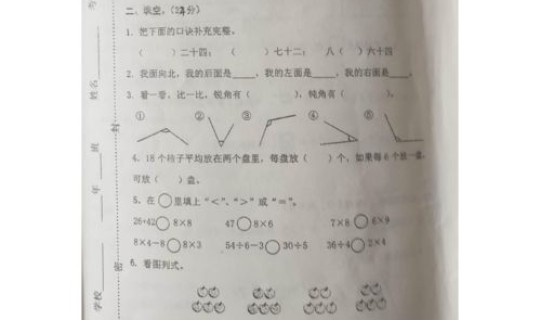 二、填空。(24分)
1. 把下面的口诀补充完整。
( )二十四; ( )七十二; 八( )六十四
2. 我面向北，我的后面是____，我的左面是____，我的右面是____。
3. 看一看，比一比，锐角有( )，钝角有( )。
① ② ③ ④ ⑤
4. 18个柿子平均放在两个盘里，每盘放( )个，如果每6个放一盘，
可放( )盘。
5. 在○里填上“<”、“>”或“=”。
26+42○8×8 47○8×6 7×8○6×9
8×4-8○8×3 54÷6-3○30÷5 36÷4○2×4
6. 看图列式。
考
姓名
封
班
年
密
学校